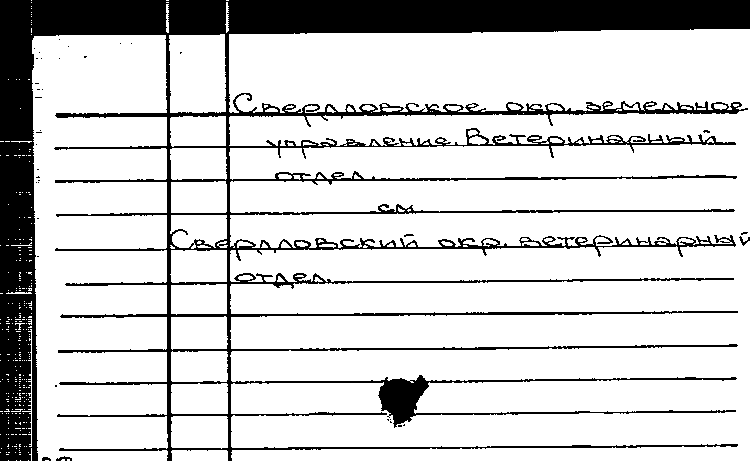 Свердловское окр. земельное
управление. Ветеринарный
отдел.
см
Свердловский окр. ветеринарный
отдел.